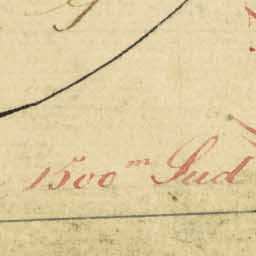 1500ᵐ Sud